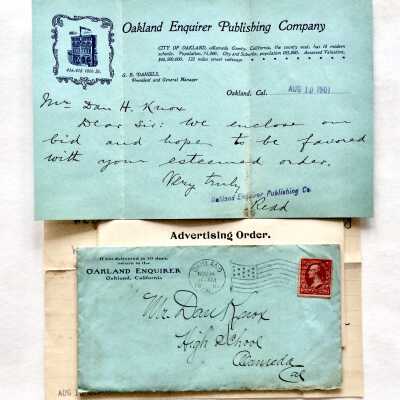 Oakland Enquirer Publishing Company
CITY OF OAKLAND, Alameda County, California, the county seat, has 16 modern
schools. Population, 74,000. City and Suburbs, population 105,000. Assessed Valuation,
125 miles street railways
G. B. DANIELS,
President and General Manager
Oakland, Cal. AUG 10 1901
Mr Dan H. Knox
Dear Sir: We enclose our
bid and hope to be favored
with your esteemed order.
Very truly
Oakland Enquirer Publishing Co.
Read
Advertising Order.
If not delivered in 10 days,
return to the
OAKLAND ENQUIRER
Oakland, California
OAKLAND
Mr. Dan Knox
High School
Alameda
Cal
AUG 10